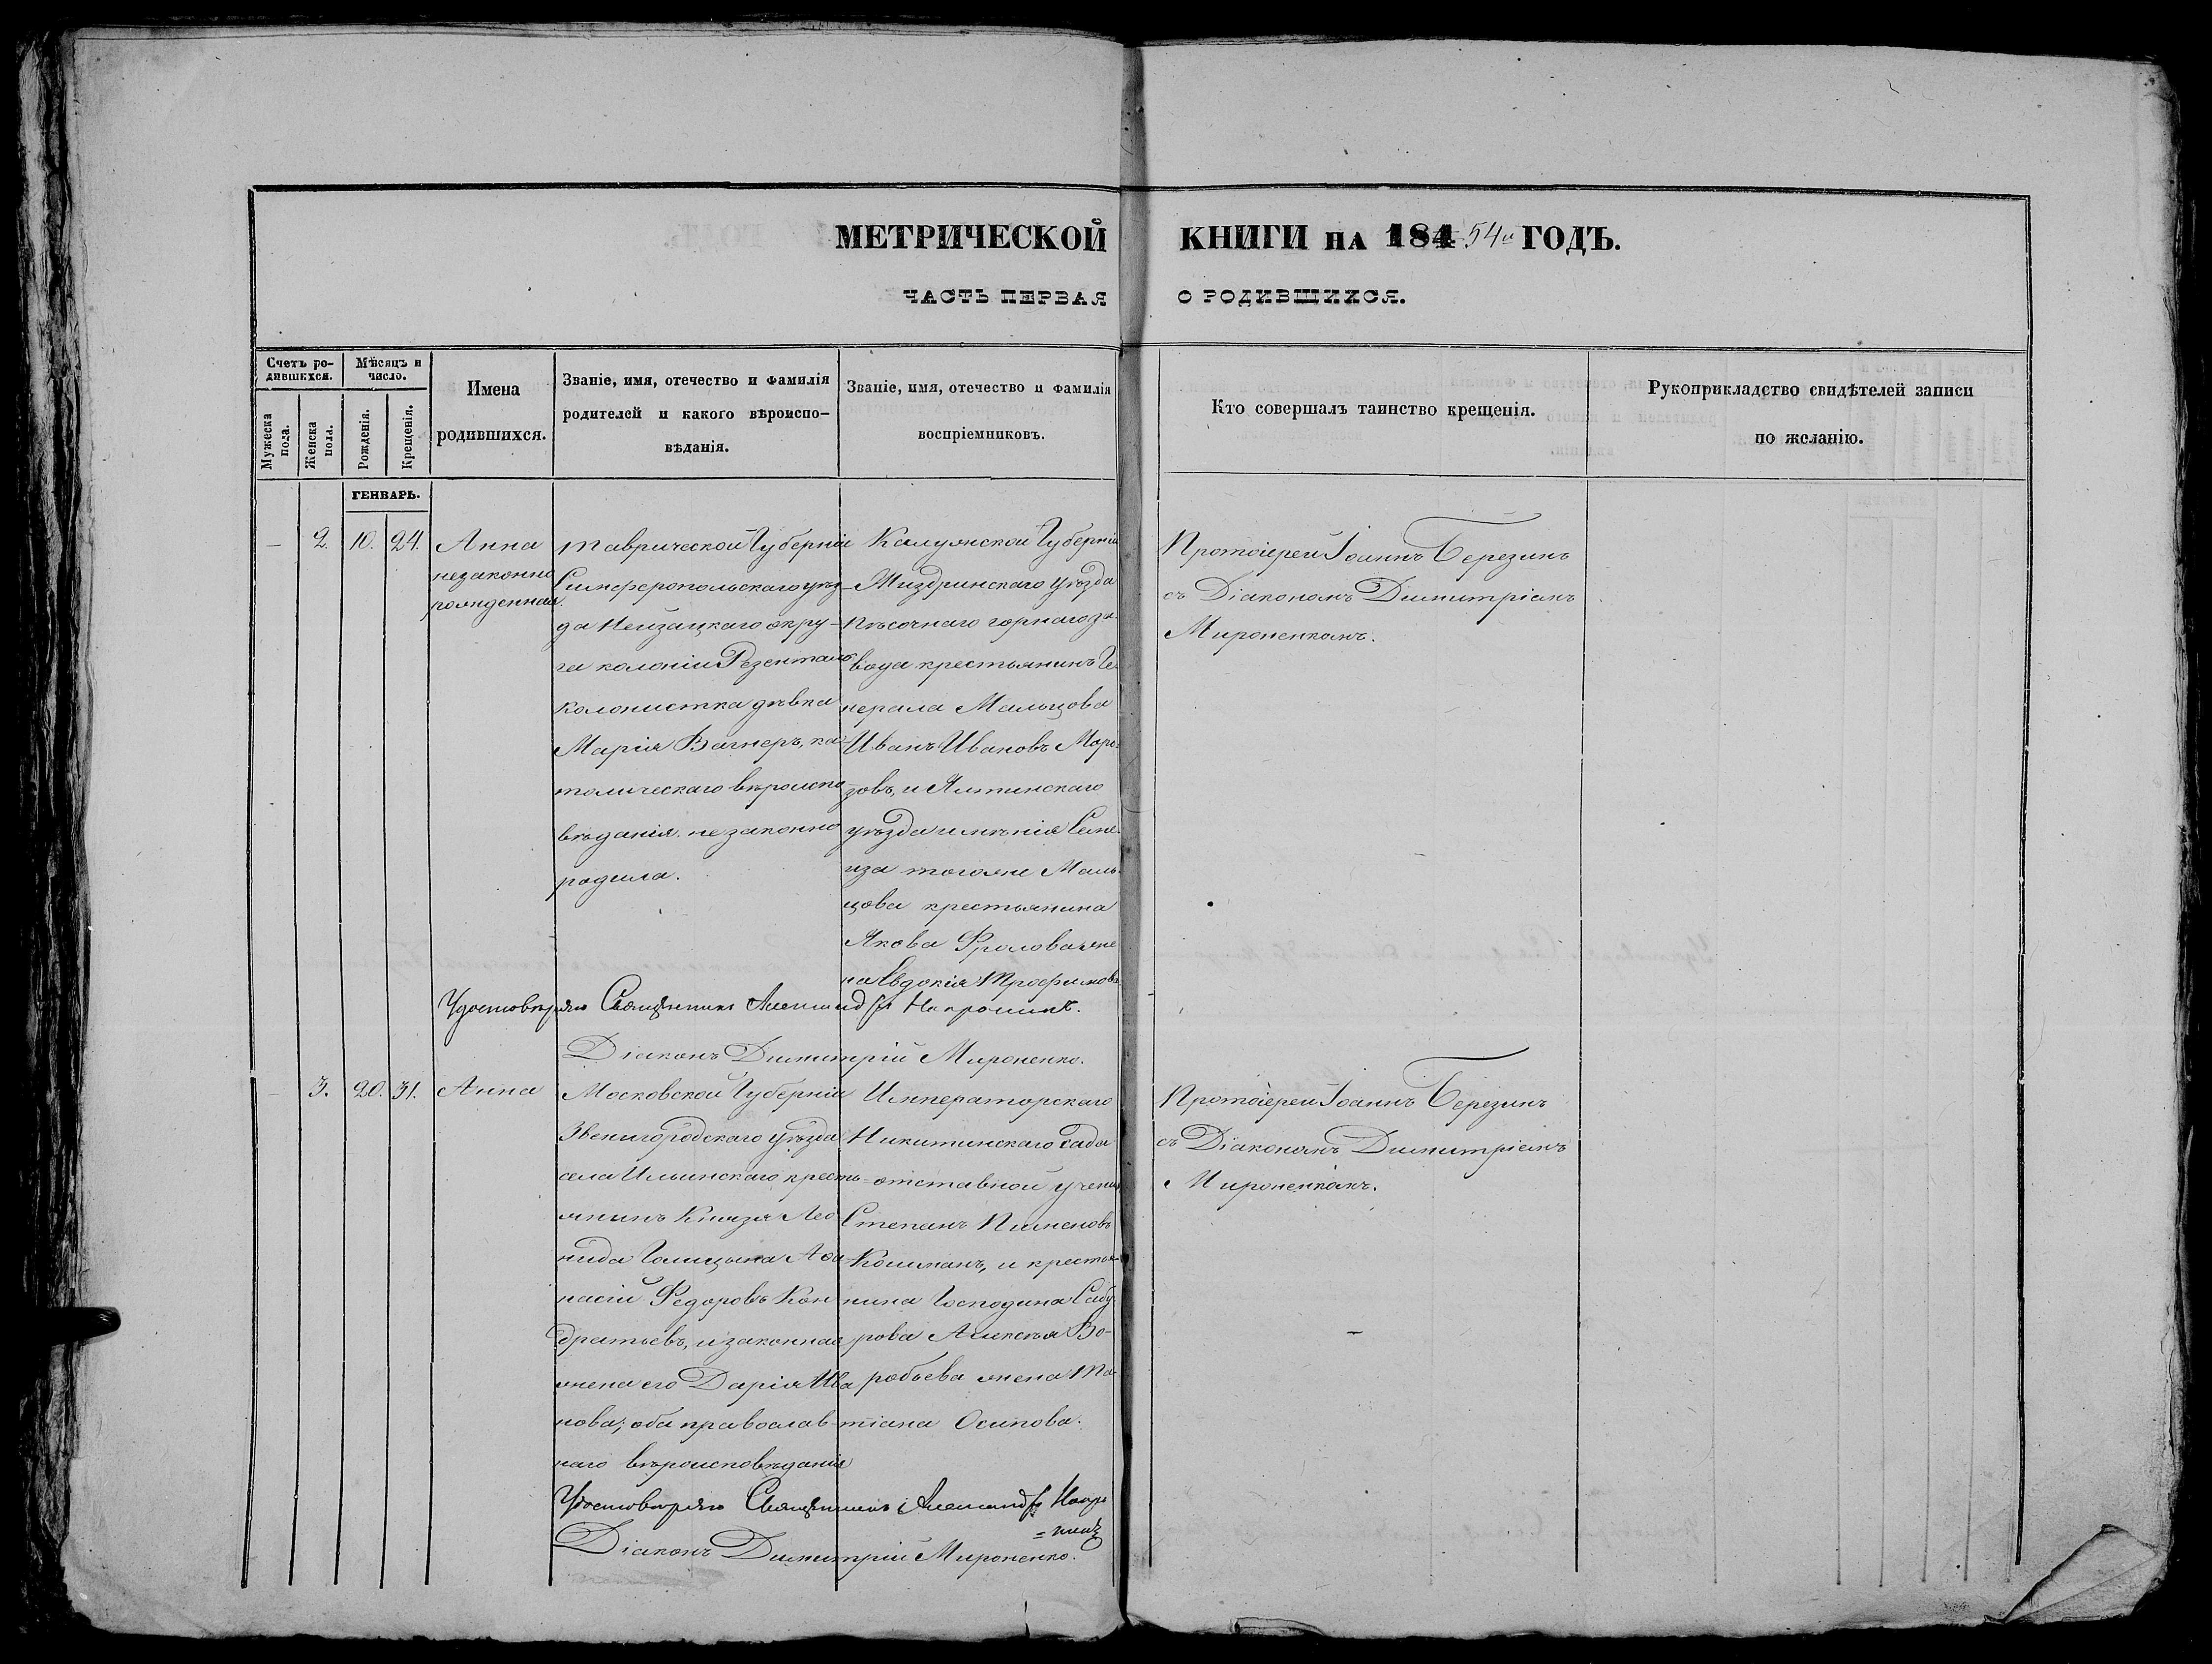 МЕТРИЧЕСКОЙ КНИГИ НА 184 54й ГОДЪ.
ЧАСТЬ ПЕРВАЯ О РОДИВШИХСЯ.
Счетъ ро-
дившихся.
Мужеска
пола.
Женска
пола.
Мѣсяцъ и
число.
Рожденія.
Крещенія.
Имена
родившихся.
Званіе, имя, отечество и фамилія
родителей и какого вѣроиспо-
вѣданія.
Званіе, имя, отечество и фамилія
воспріемниковъ.
Кто совершалъ таинство крещенія.
Рукоприкладство свидѣтелей записи
по желанію.
ГЕНВАРЬ.
– 2. 10. 24.
Анна
незаконно
рожденная.
Таврической Губерніи
Симферопольскаго уѣз-
да Нейзацкаго окру-
га колоніи Розенталь
колонистка дѣвка
Марія Вагнеръ, ка-
толическаго вѣроиспо-
вѣданія. незаконно
родила.
Калужской Губерніи
Миздринскаго уѣзда
Пѣсочнаго горнаго за-
вода крестьянинъ Ге-
нерала Мальцова
Иванъ Ивановъ Моро-
зовъ, и Ялтинскаго
уѣзда имѣнія Семе-
иза тогоже Маль-
цова крестьянина
Якова Фролова же-
на Евдокія Трофимова
Протоіерей Іоаннъ Березинъ
съ Діакономъ Димитріемъ
Мироненкомъ.
Удостовѣряю Священникъ Александръ
Діаконъ Димитрій Мироненко.
– 3. 20. 31.
Анна
Московской Губерніи
Звенигородскаго уѣзда
села Ильинскаго кресть-
янинъ Князя Лео-
нида Голицына Аѳа-
насій Федоровъ Кон-
дратьевъ, и законная
жена его Дарія Ива
нова; оба православ-
наго вѣроисповѣданія
Императорскаго
Никитинскаго Сада
отставной ученикъ
Степанъ Пименовъ
Кошманъ, и крестья-
нина Господина Сабу-
рова Алексѣя Во-
робьева жена Та-
тіана Осипова.
Протоіерей Іоаннъ Березинъ
съ Діакономъ Димитріемъ
Мироненкомъ.
Удостовѣряю Священникъ Александръ
Діаконъ Димитрій Мироненко.